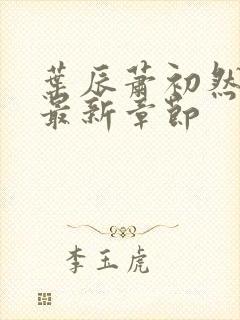 葉辰蕭初然
最新章節
李玉虎